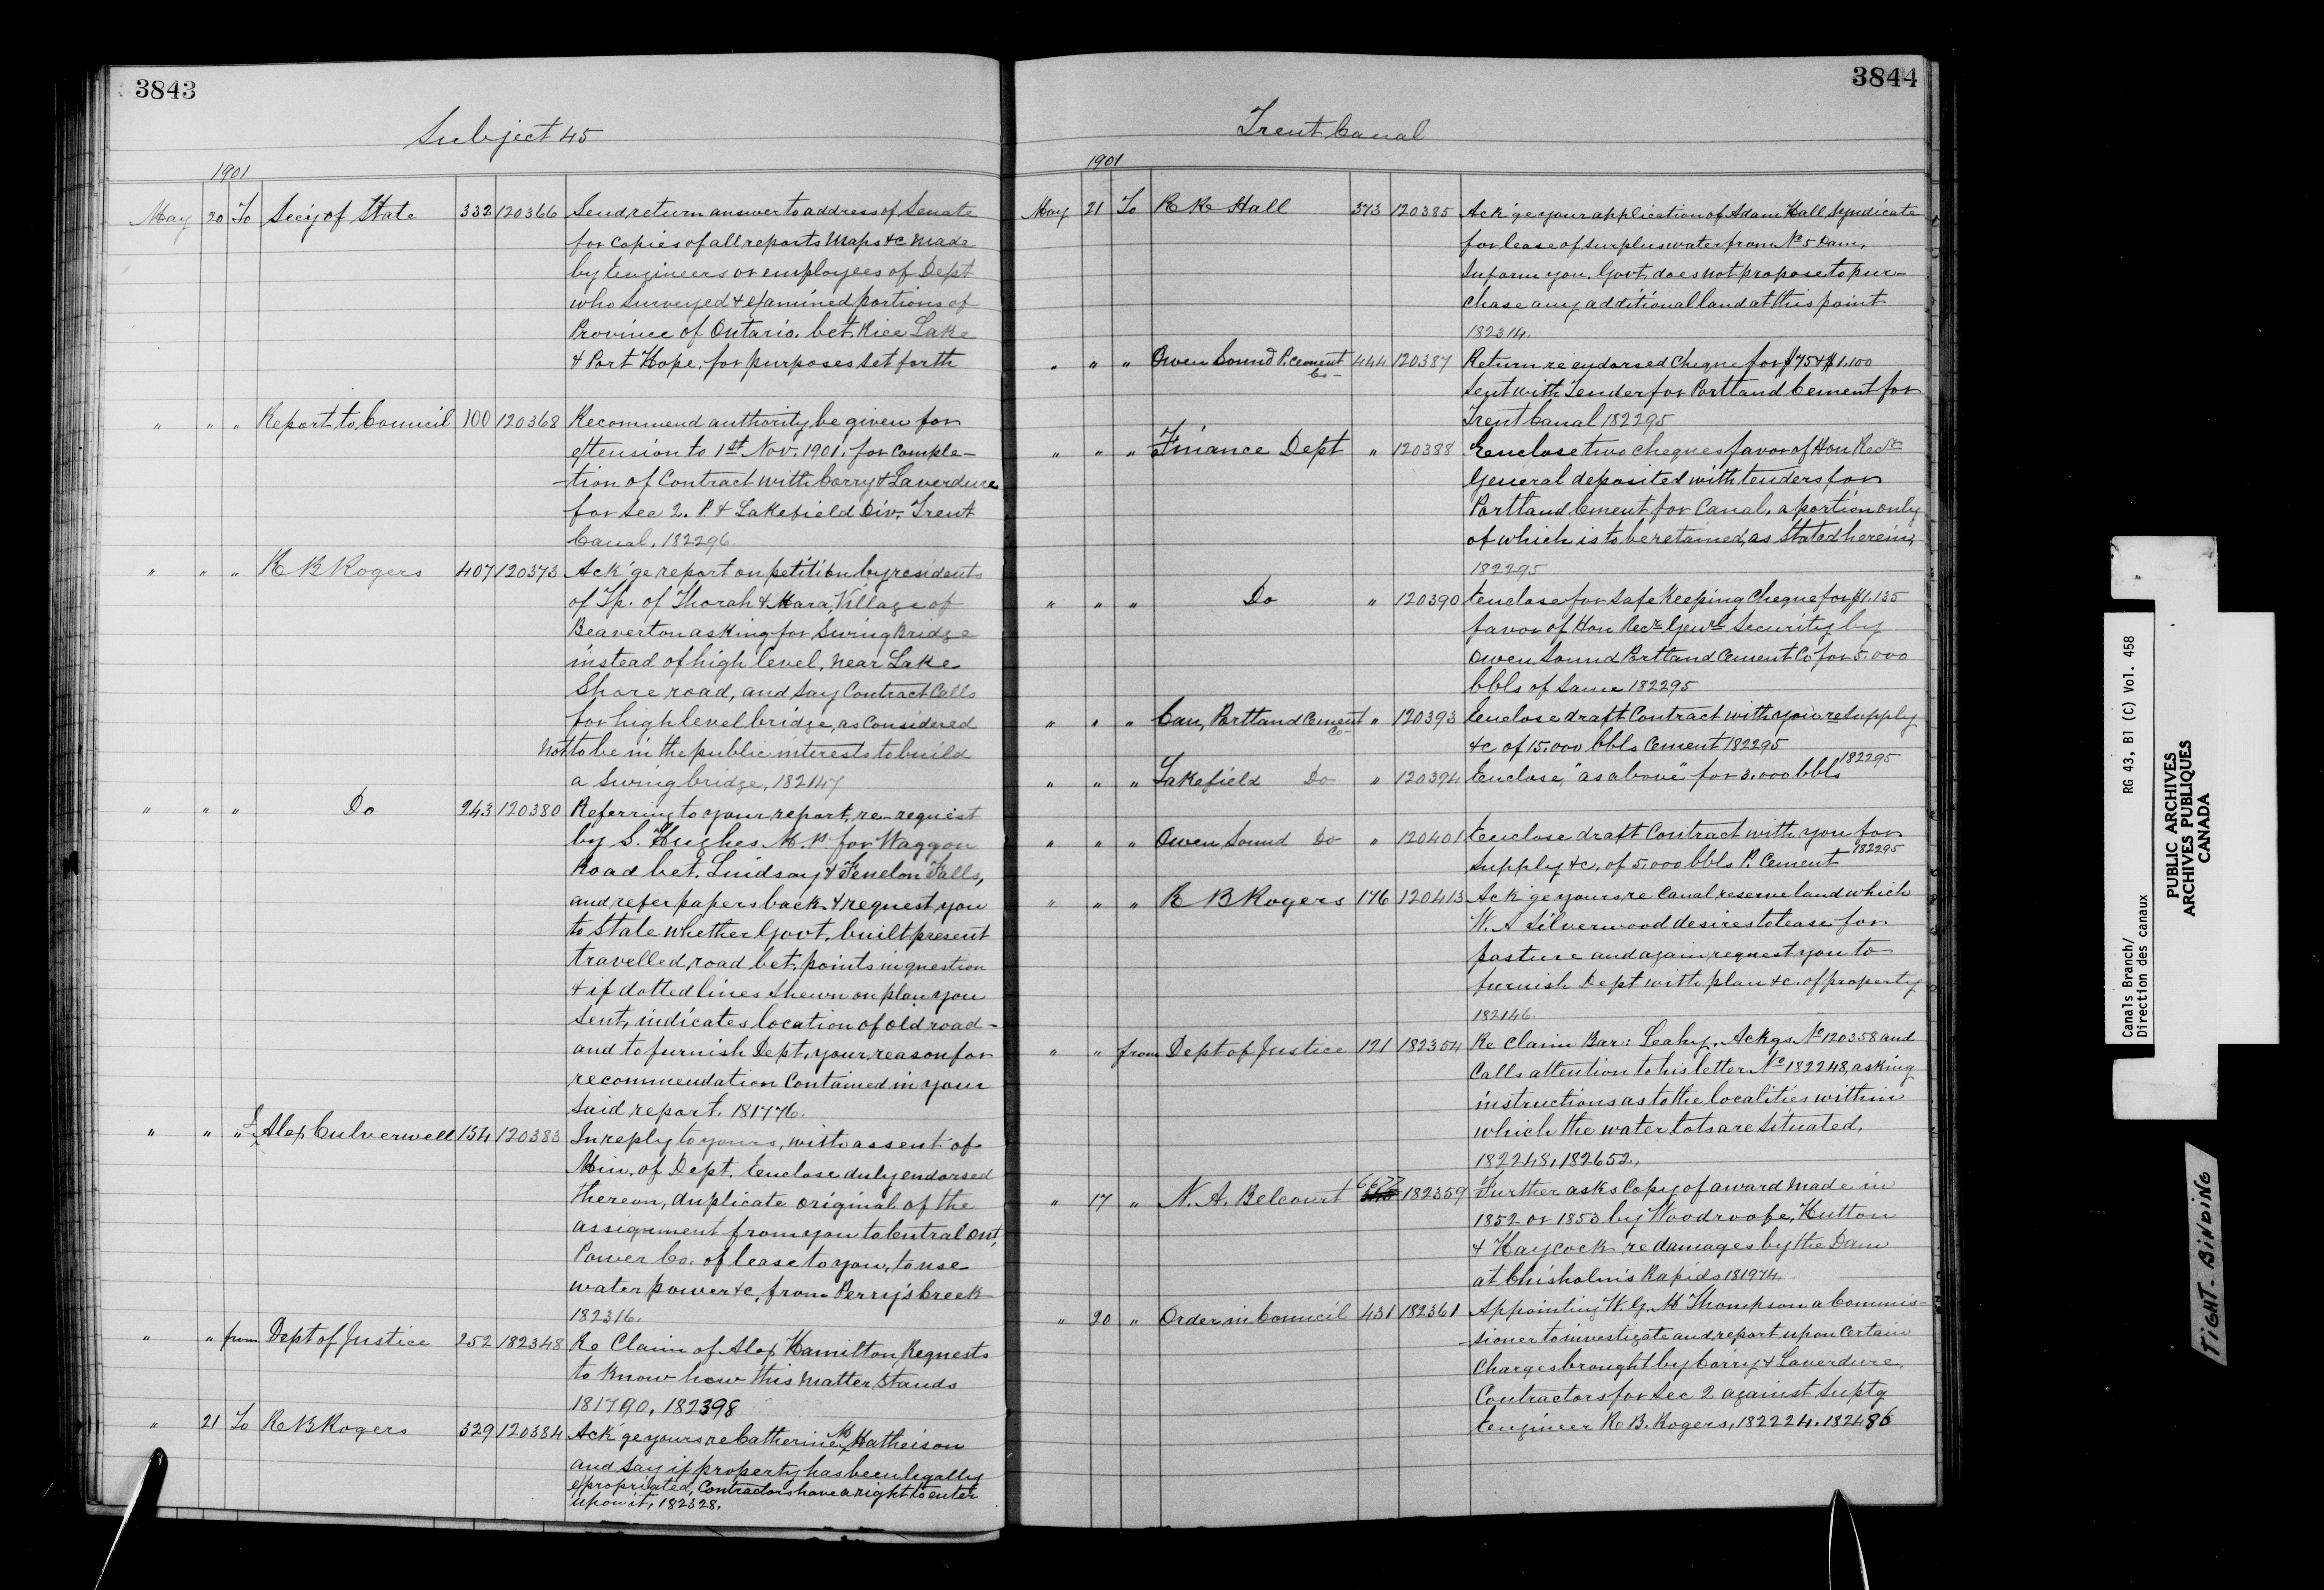 3843
Subject 45
1901
May 20 To Sec'y of State 332 120366 Send return answer to address of Senate
for copies of all reports Maps &c made
by Engineers or employees of Dept
who surveyed & examined portions of
Province of Ontario. bet. Rice Lake
& Port Hope. for purposes set forth
" " " Report to Council 100 120368 Recommend authority be given for
extension to 1st Nov. 1901. for comple-
-tion of Contract with Corry & Laverdure
for Sec 2. P. & Lakefield Div. Trent
Canal. 182296.
" " " R B Rogers 407 120373 Ack'ge report on petition by residents
of Tp. of Thorah & Mara, Village of
Beaverton asking for Swing Bridge
instead of high level, near Lake
Shore road, and say Contract Calls
for high level bridge, as Considered
not to be in the public interests to build
a Swing bridge, 182147
" " " Do 243 120380 Referring to your report, re-request
by S. Hughes M.P. for Waggon
Road bet. Lindsay & Fenelon Falls,
and refer papers back & request you
to State whether Govt. built present
travelled road bet. points in question
& if dotted lines shewn on plan you
sent, indicates location of old road-
and to furnish Dept. your reason for
recommendation Contained in your
said report. 181776.
" " " Alex Culverwell 154 120383 In reply to yours, with assent of
Min. of Dept. Enclose duly endorsed
thereon, duplicate original of the
assignment from you to Central Ont,
Power Co. of lease to you, to use
water power &c, from Perry's Creek
182316.
" " from Dept of Justice 252 182348 Re Claim of Alex Hamilton Requests
to know how this matter stands
181790, 182398
" 21 To R B Rogers 329 120384 Ack'ge yours re Catherine Matheison
and say if property has been legally
expropriated, Contractors have a right to enter
upon it, 182328.
3844
Trent Canal
1901
May 21 To R R Hall 373 120385 Ack'ge your application of Adam Hall Syndicate
for lease of surplus water from No 5 Dam,
Inform you. Govt. does not propose to pur-
chase any additional land at this point
182314.
" " " Owen Sound P. Cement Co- 444 120387 Return re endorsed Cheque for $75 & $1.100
sent with Tender for Portland Cement for
Trent Canal 182295
" " " Finance Dept " 120388 Enclose two cheques favor of Hon Recr
General deposited with tenders for
Portland Cement for Canal, a portion only
of which is to be retained, as stated herein,
182295
" " " Do " 120390 Enclose for safe keeping Cheque for $1.135
favor of Hon Recr Genrl Security by
Owen Sound Portland Cement Co for 5.000
bbls of Same 182295
" " " Can, Portland Cement Co- " 120393 Enclose draft Contract with you re supply
&c of 15.000 bbls Cement 182295
" " " Lakefield Do " 120394 Enclose, "as above" for 3.000 bbls 182295
" " " Owen Sound Do " 120401 Enclose draft Contract with you for
supply &c, of 5.000 bbls P. Cement 182295
" " " R B Rogers 176 120413 Ack'ge yours re Canal reserve land which
W. A Silverwood desires to lease for
pasture and again request you to
furnish Dept with plan &c. of property
182146.
" " from Dept of Justice 121 182354 Re Claim Bar: Leahy. Ackgs. No 120358 and
Calls attention to his letter No 182248, asking
instructions as to the localities within
which the water lots are situated.
182248, 182652.,
" 17 " N. A. Belcourt 6677 182359 Further asks Copy of award made in
1852 or 1853 by Woodroofe, Hutton
& Haycock re damages by the Dam
at Chisholm's Rapids 181974.
" 20 " Order in Council 431 182361 Appointing W. G. M Thompson a Commis-
-sioner to investigate and report upon Certain
Charges brought by Corry & Laverdure,
Contractors for Sec 2 against Suptg
Engineer R B. Rogers, 182224. 182486
Canals Branch/ RG 43, B1 (C) Vol. 458
Direction des canaux
PUBLIC ARCHIVES
ARCHIVES PUBLIQUES
CANADA
TIGHT BINDING